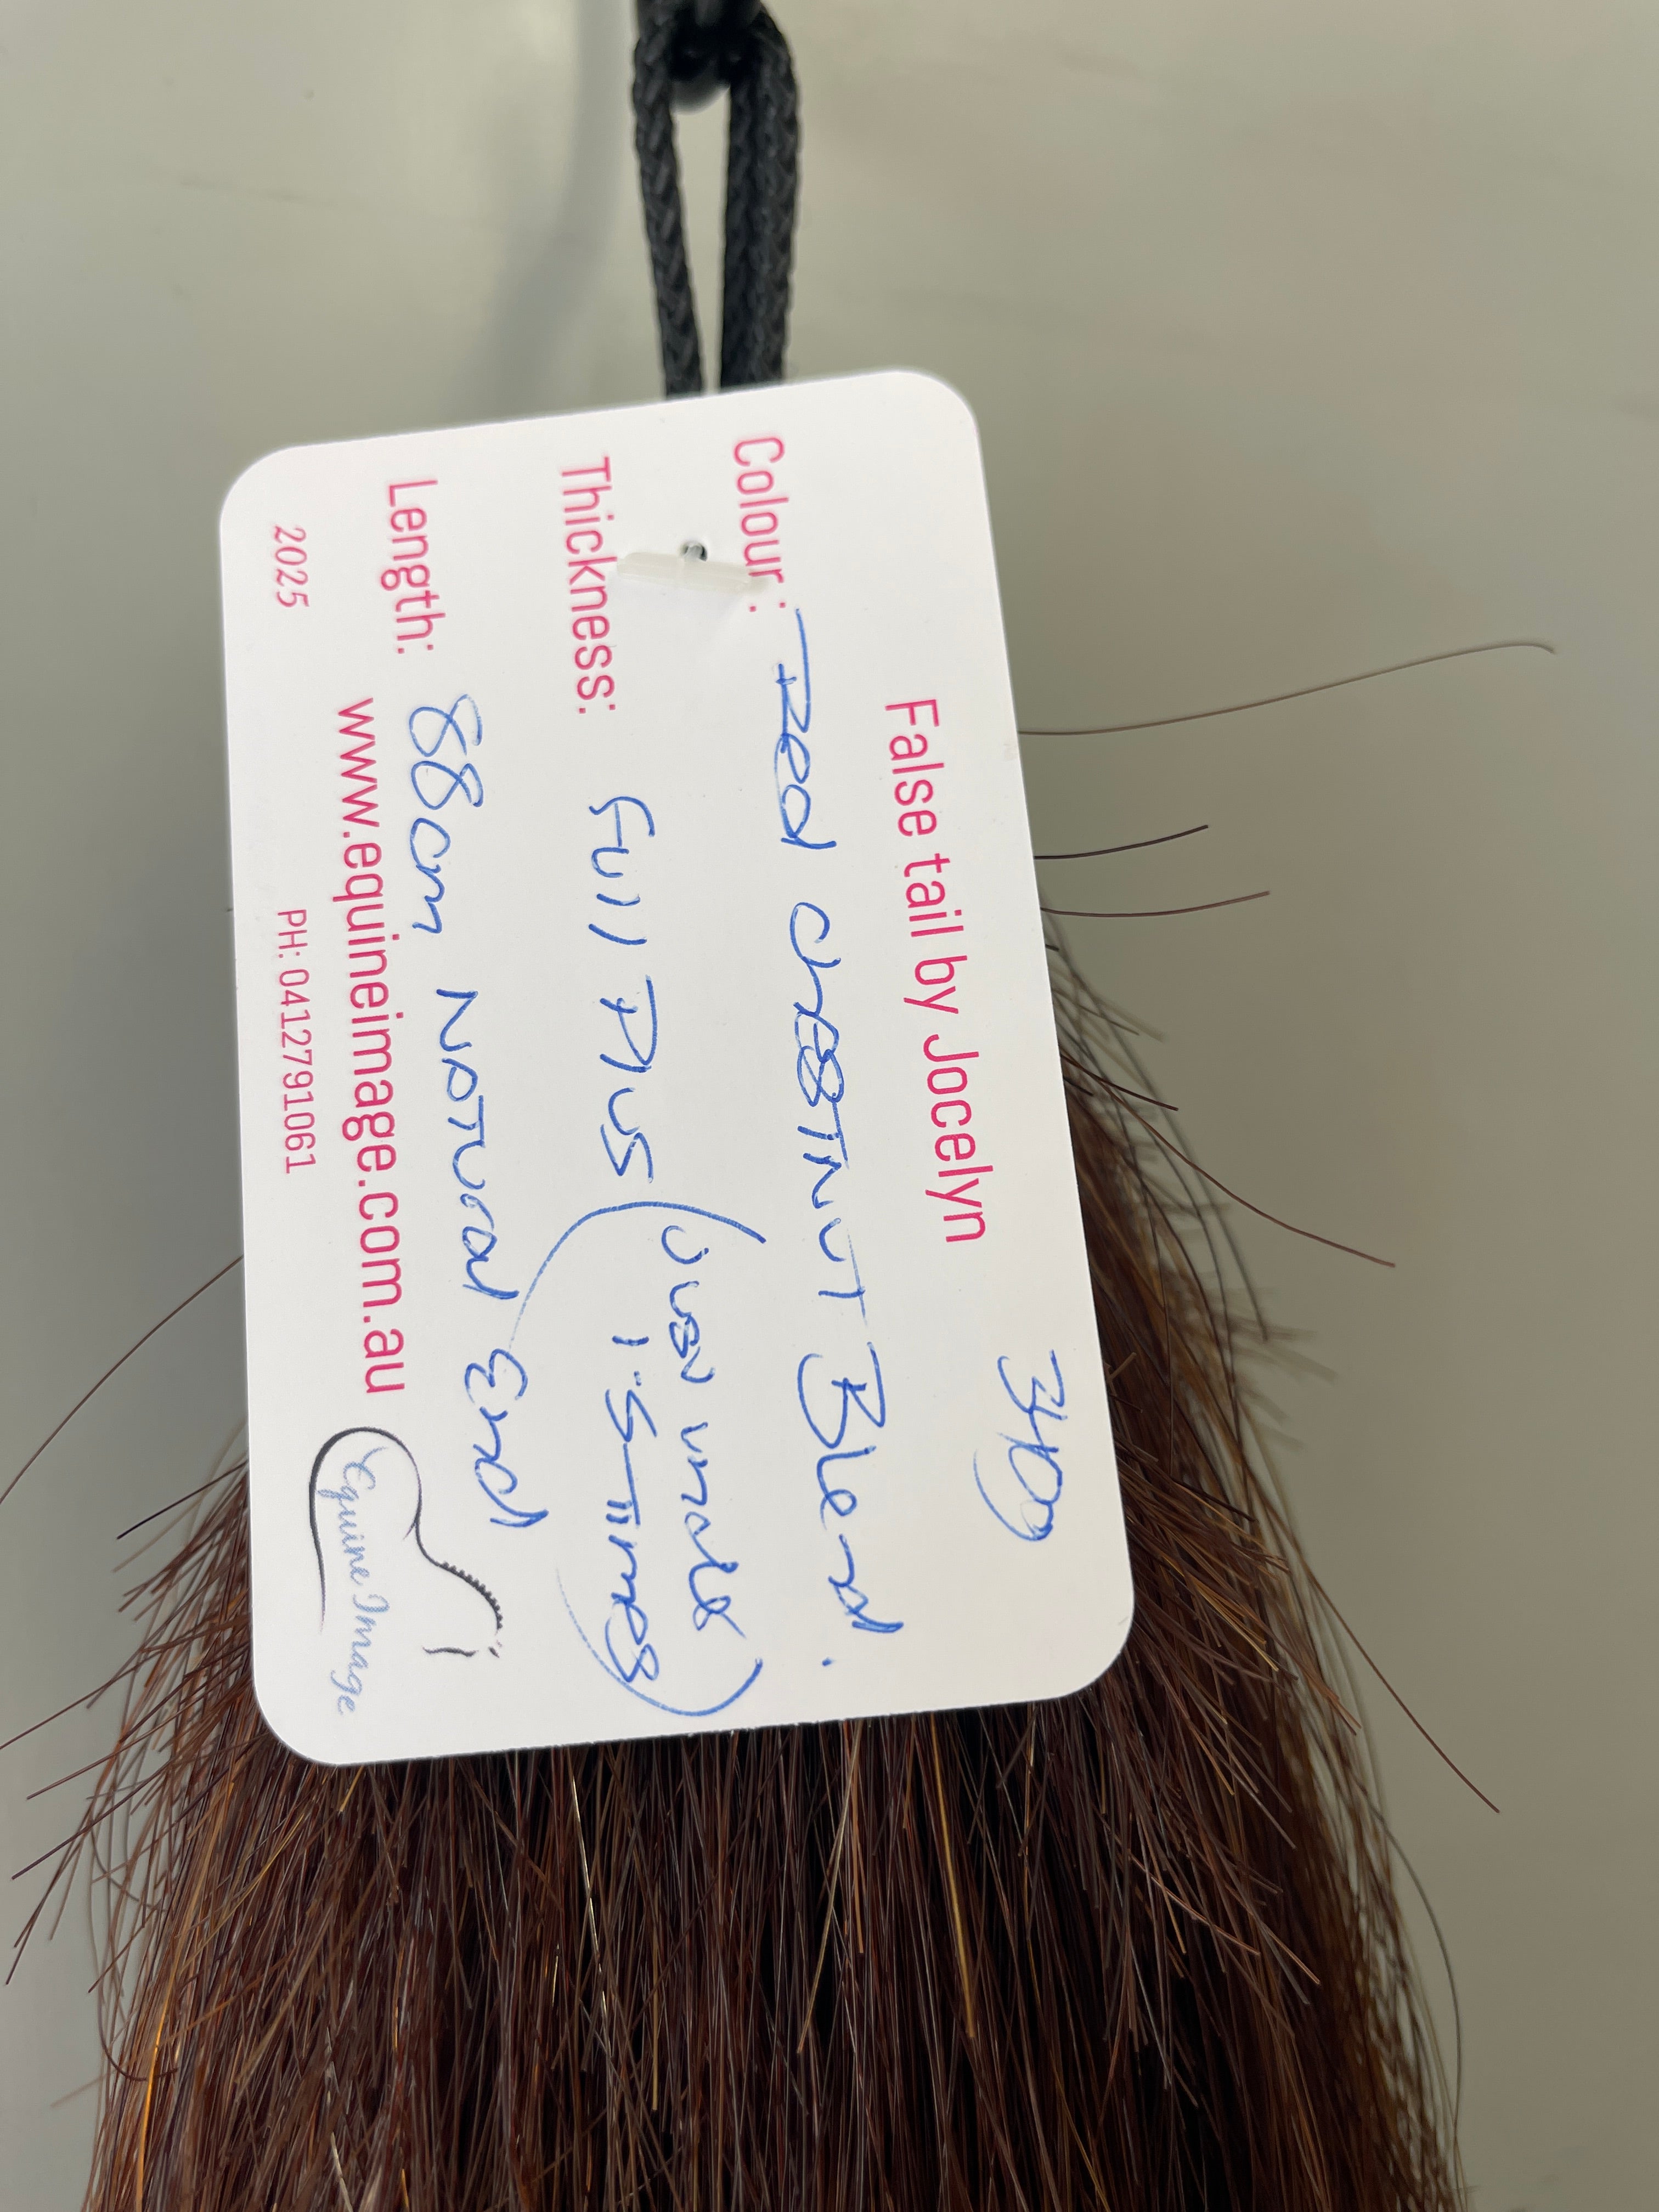 False tail by Jocelyn
Colour: Red chestnut Blend.
Thickness: full plus (
1.5 times)
Length: 88cm natural End
www.equineimage.com.au
2025 PH: 0412791061
Equine Image